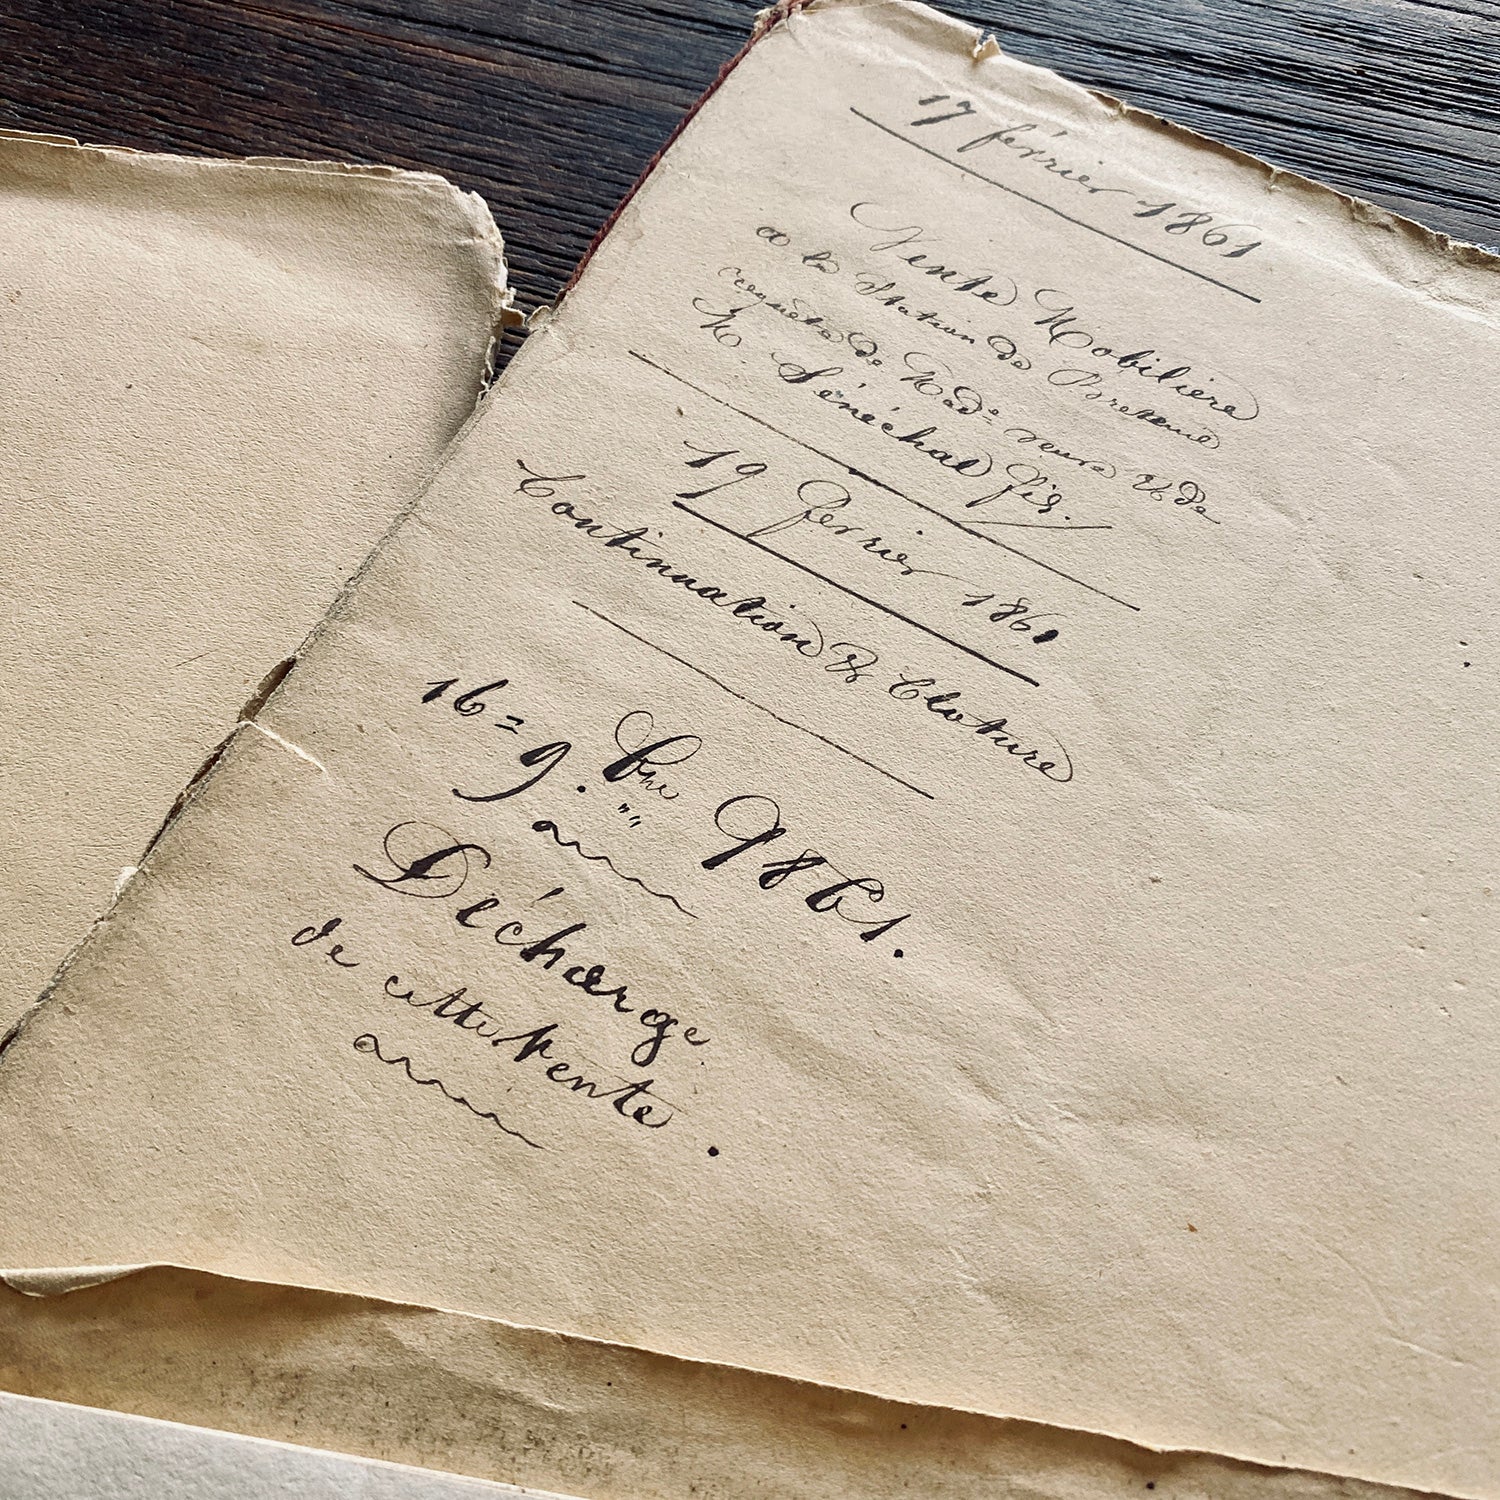 17 février 1861
Vente Mobilière
a la Station de Breteuil
requête de Made veuve & de
M. Sénéchal fils.
19 février 1861
Continuation & Cloture
16 = 9. bre 1861.
Décharge
de cette vente.